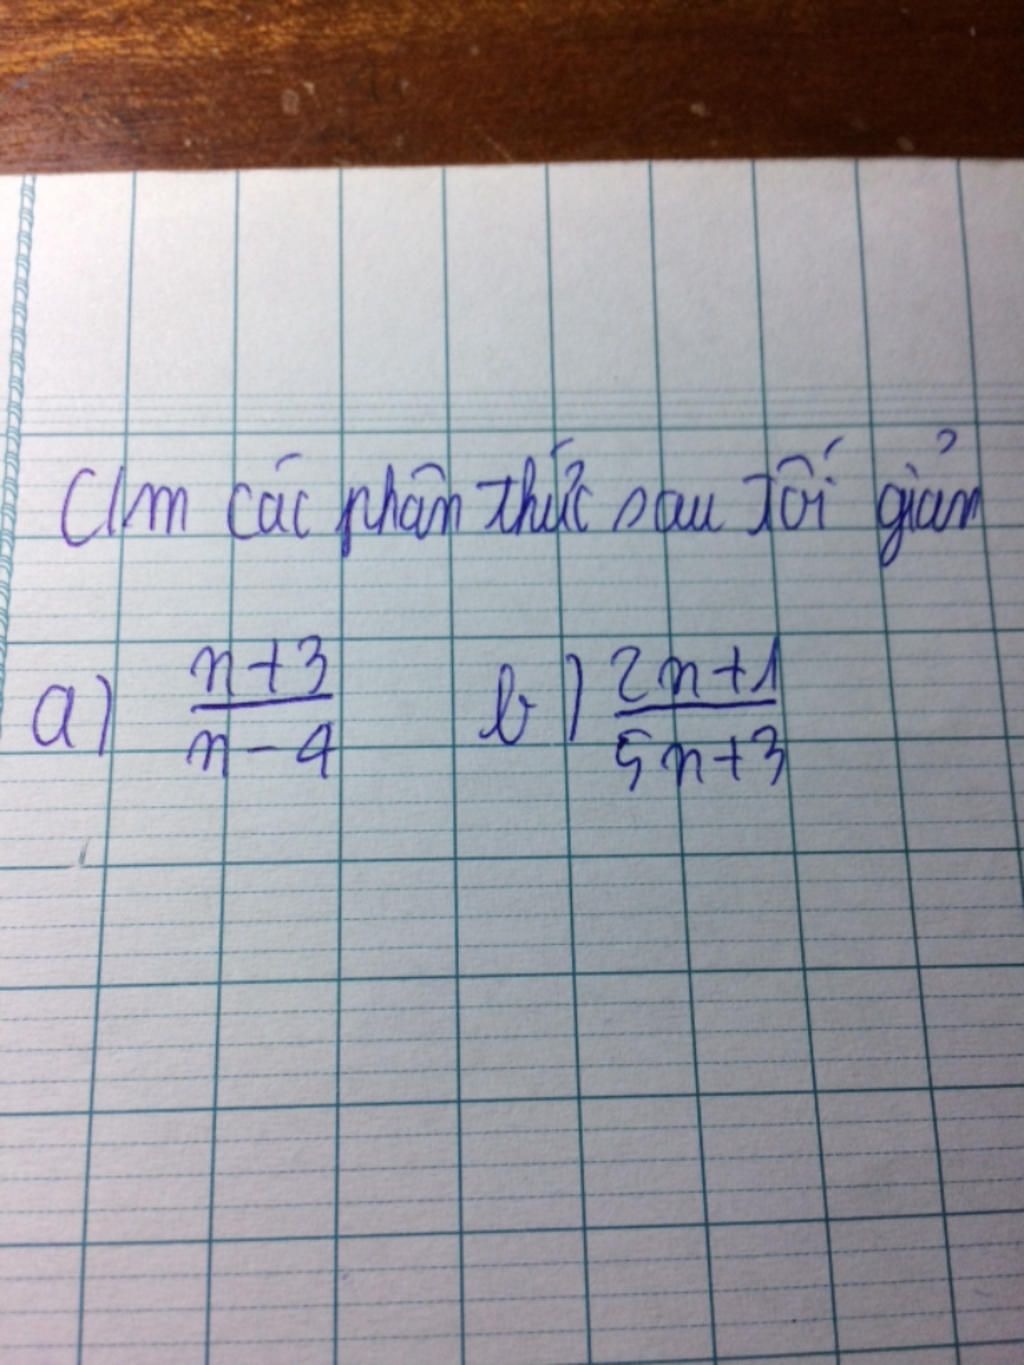 C/m các phân thức sau tối giản
a) \frac{n+3}{n-4} b) \frac{2n+1}{5n+3}